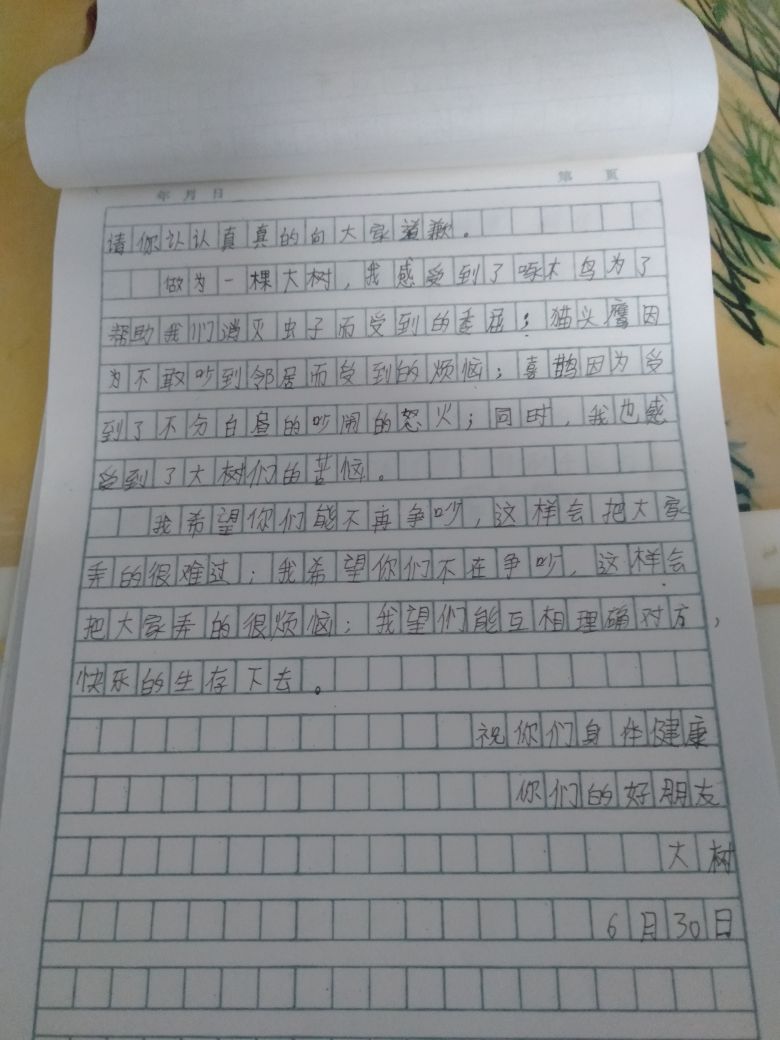 年 月 日 第 页
请你认认真真的向大家道歉。
做为一棵大树，我感受到了啄木鸟为了
帮助我们消灭虫子而受到的委屈；猫头鹰因
为不敢吵到邻居而受到的烦恼；喜鹊因为受
到了不分白昼的吵闹的怒火；同时，我也感
受到了大树们的苦恼。
我希望你们能不再争吵，这样会把大家
弄的很难过；我希望你们不在争吵，这样会
把大家弄的很烦恼；我望们能互相理确对方，
快乐的生存下去。
祝你们身体健康
你们的好朋友
大树
6月30日